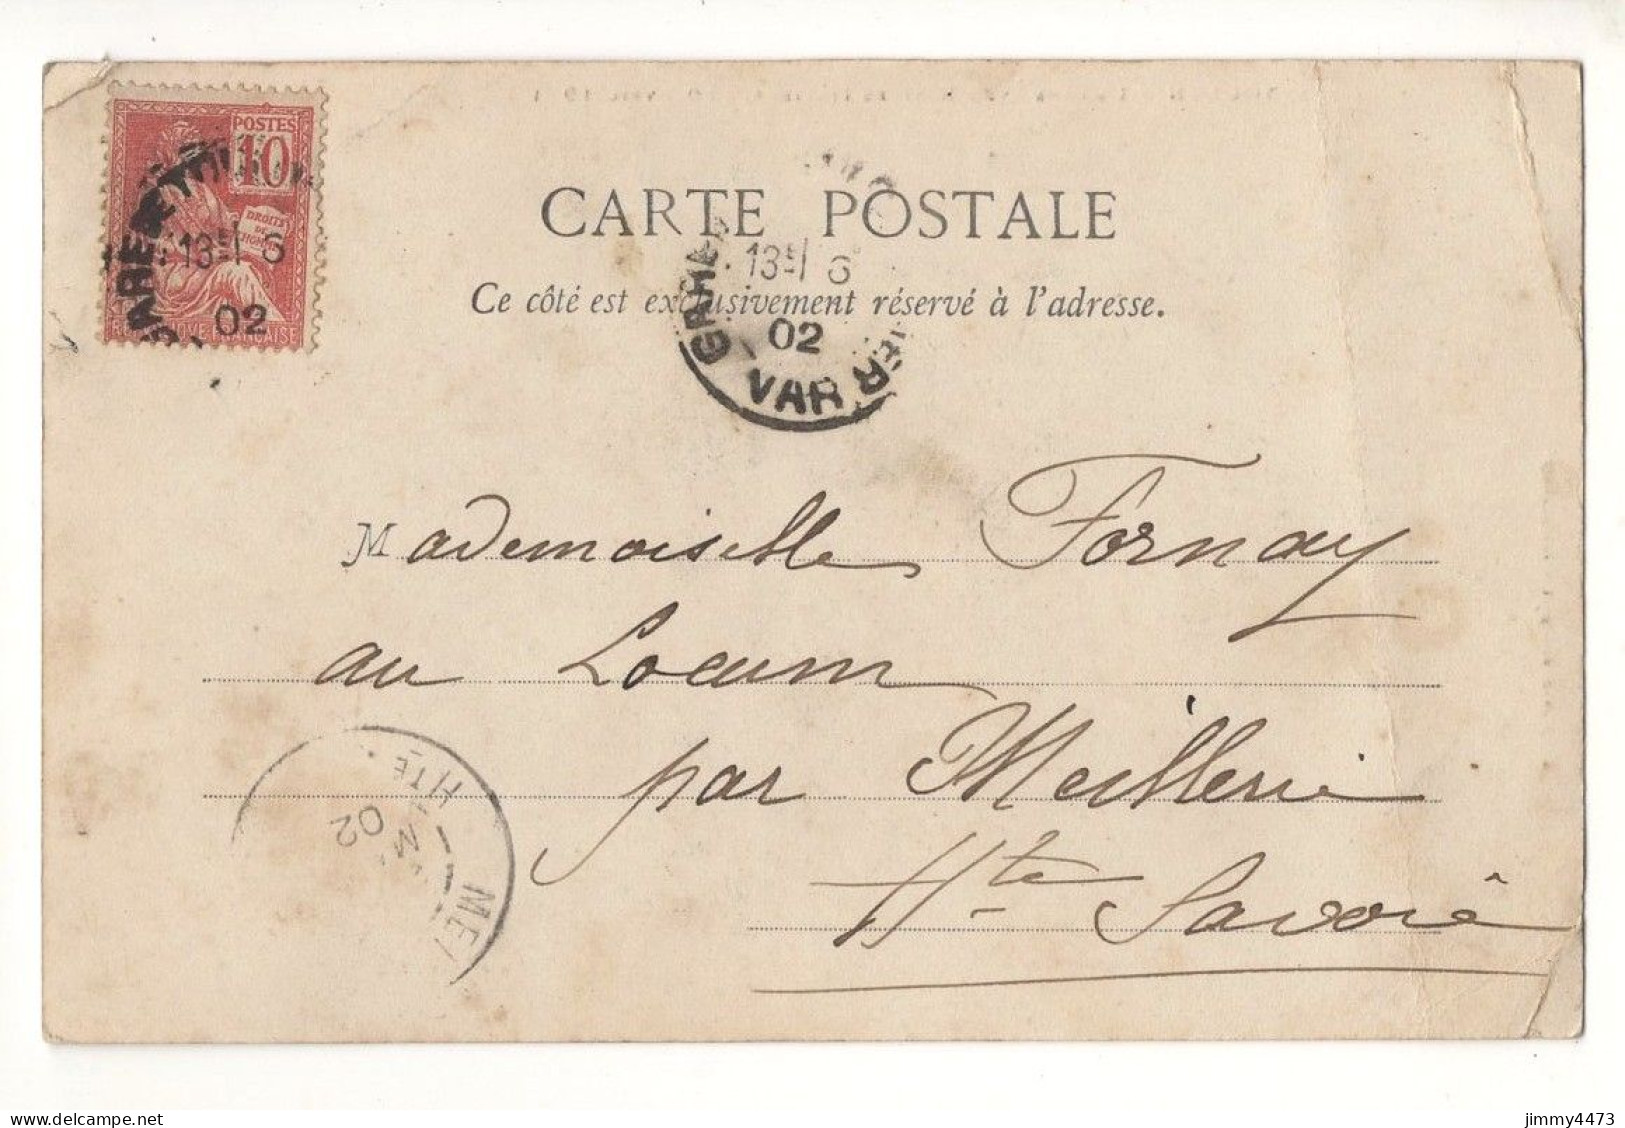 POSTES
10
DROITS
DE
13 6
02
CARTE POSTALE
13 6
02
VAR
Ce côté est exclusivement réservé à l'adresse.
Mademoiselle Fornay
au Locum
par Meillerie
Hte Savoie
HTE
02
delcampe.net
jimmy4473